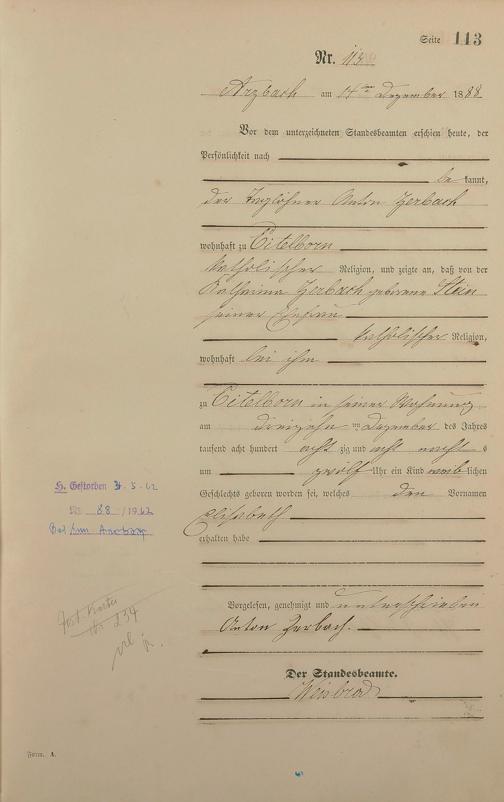 Seite 113
Nr. 113
Arzbach am 14ten Dezember 1888
Vor dem unterzeichneten Standesbeamten erschien heute, der
Persönlichkeit nach
be kannt,
der Taglöhner Anton Zerbach
wohnhaft zu Eitelborn
katholischer Religion, und zeigte an, daß von der
Katharina Zerbach geborene Stein
seiner Ehefrau
katholischer Religion,
wohnhaft bei ihm
zu Eitelborn in seiner Wohnung
am dreizehnten Dezember des Jahres
tausend acht hundert acht zig und acht nachts
um zwölf Uhr ein Kind weiblichen
Geschlechts geboren worden sei, welches den Vornamen
Elisabeth
erhalten habe
H. Gestorben 31.5.62
Nr. 88 / 1962
Bad Ems
Vorgelesen, genehmigt und unterschrieben
Anton Zerbach.
Nr 234
Der Standesbeamte.
Weisbrod
Form. A.